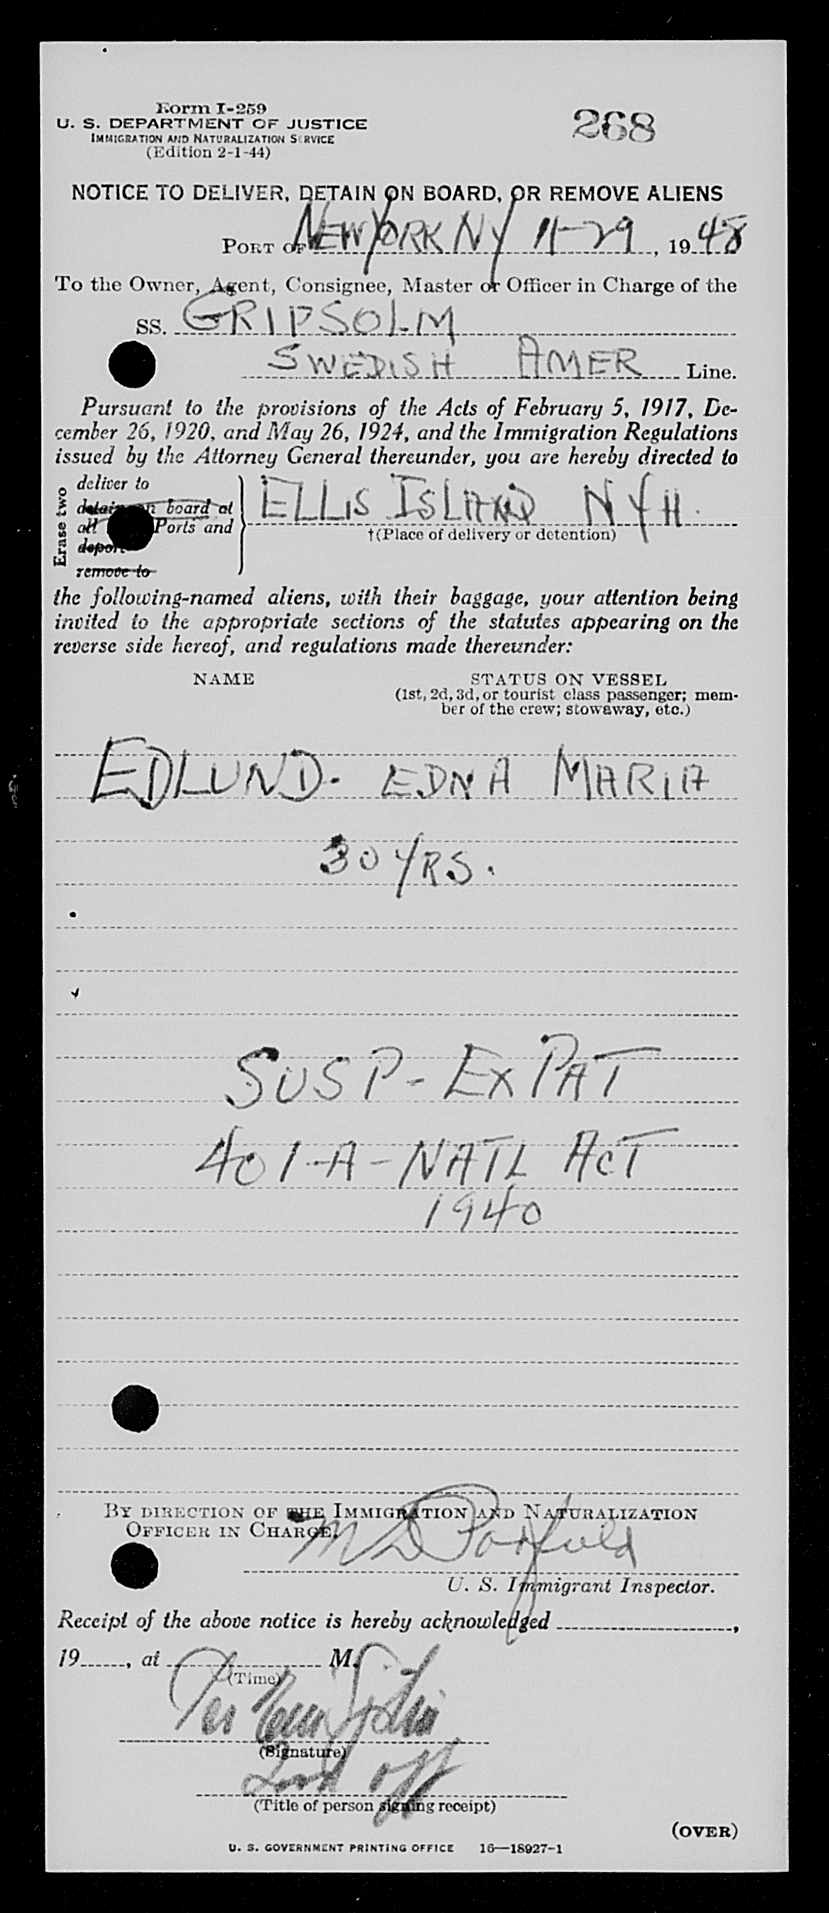 Form I-259
268
U. S. DEPARTMENT OF JUSTICE
IMMIGRATION AND NATURALIZATION SERVICE
(Edition 2-1-44)
NOTICE TO DELIVER, DETAIN ON BOARD, OR REMOVE ALIENS
PORT OF NEW YORK NY 11-29, 1948
To the Owner, Agent, Consignee, Master or Officer in Charge of the
SS. GRIPSOLM
SWEDISH AMER Line.
Pursuant to the provisions of the Acts of February 5, 1917, De-
cember 26, 1920, and May 26, 1924, and the Immigration Regulations
issued by the Attorney General thereunder, you are hereby directed to
Erase two
deliver to
detain on board at
all Ports and
deport
remove to
ELLIS ISLAND NYH.
†(Place of delivery or detention)
the following-named aliens, with their baggage, your attention being
invited to the appropriate sections of the statutes appearing on the
reverse side hereof, and regulations made thereunder:
NAME
STATUS ON VESSEL
(1st, 2d, 3d, or tourist class passenger; mem-
ber of the crew; stowaway, etc.)
EDLUND. EDNA MARIA
30 YRS.
SUSP-EXPAT
401-A-NATL ACT
1940
BY DIRECTION OF THE IMMIGRATION AND NATURALIZATION
OFFICER IN CHARGE.
U. S. Immigrant Inspector.
Receipt of the above notice is hereby acknowledged ,
19 , at M.
(Time)
(Signature)
2nd off
(Title of person signing receipt)
(OVER)
U. S. GOVERNMENT PRINTING OFFICE 16—18927-1